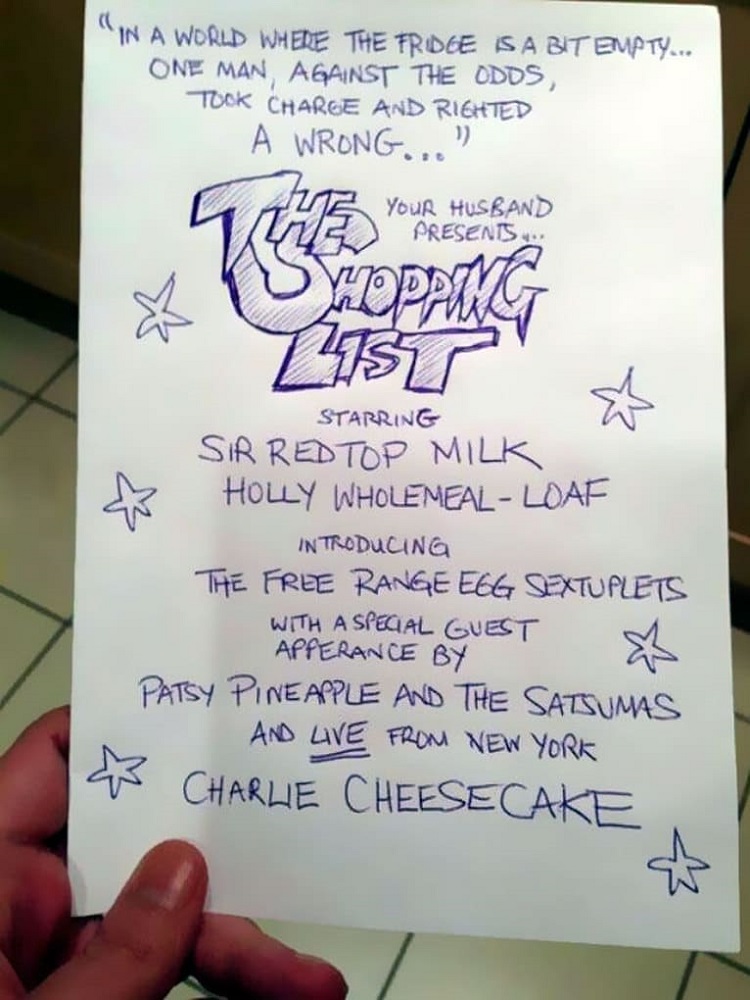 "IN A WORLD WHERE THE FRIDGE IS A BIT EMPTY...
ONE MAN, AGAINST THE ODDS,
TOOK CHARGE AND RIGHTED
A WRONG..."
YOUR HUSBAND
PRESENTS...
THE
SHOPPING
LIST
STARRING
SIR REDTOP MILK
HOLLY WHOLEMEAL-LOAF
INTRODUCING
THE FREE RANGE EGG SEXTUPLETS
WITH A SPECIAL GUEST
APPERANCE BY
PATSY PINEAPPLE AND THE SATSUMAS
AND LIVE FROM NEW YORK
CHARLIE CHEESECAKE